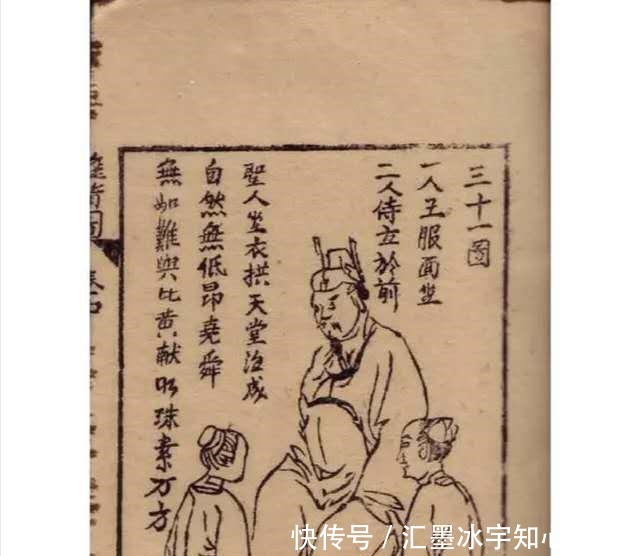 三十一圖
一人王服面坐
二人侍立於前
聖人坐衣拱天堂治成
自然無低昂堯舜
無如難與比黄献
珠素万方
快传号/汇墨冰宇知心